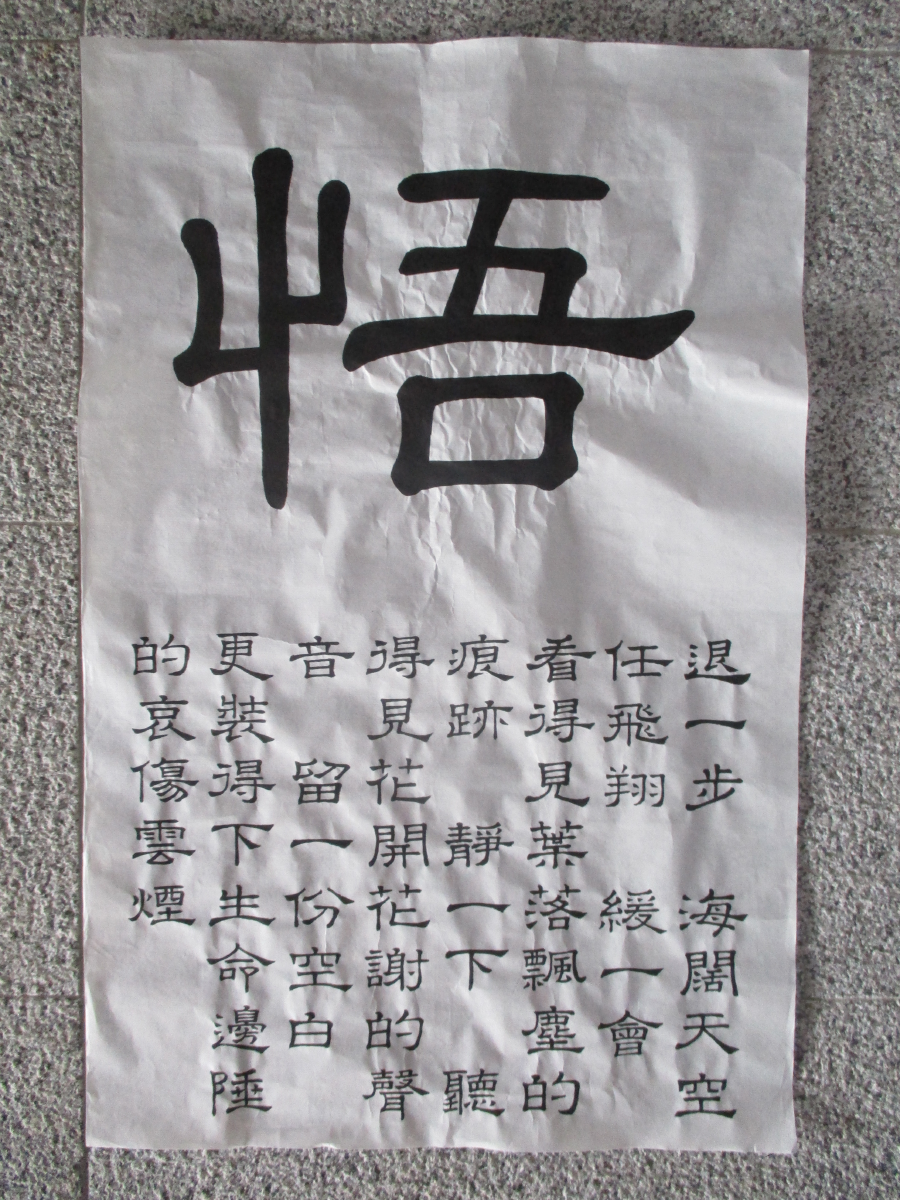 悟
退一步 海闊天空
任飛翔 緩一會
看得見葉落飄塵的
痕跡 靜一下 聽
得見花開花謝的聲
音 留一份空白
更裝得下生命邊陲
的哀傷雲煙